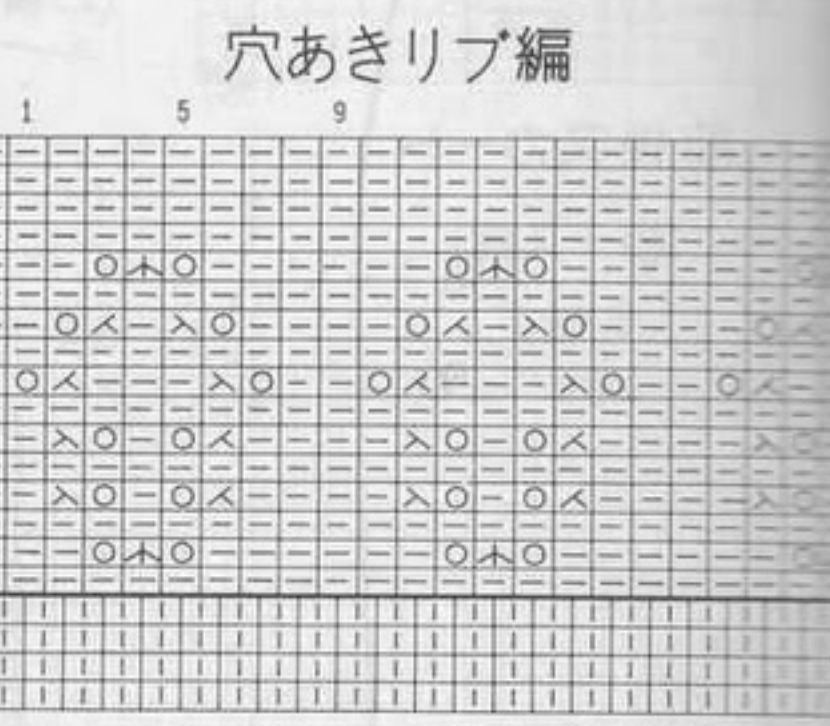 穴あきリブ編
1 5 9